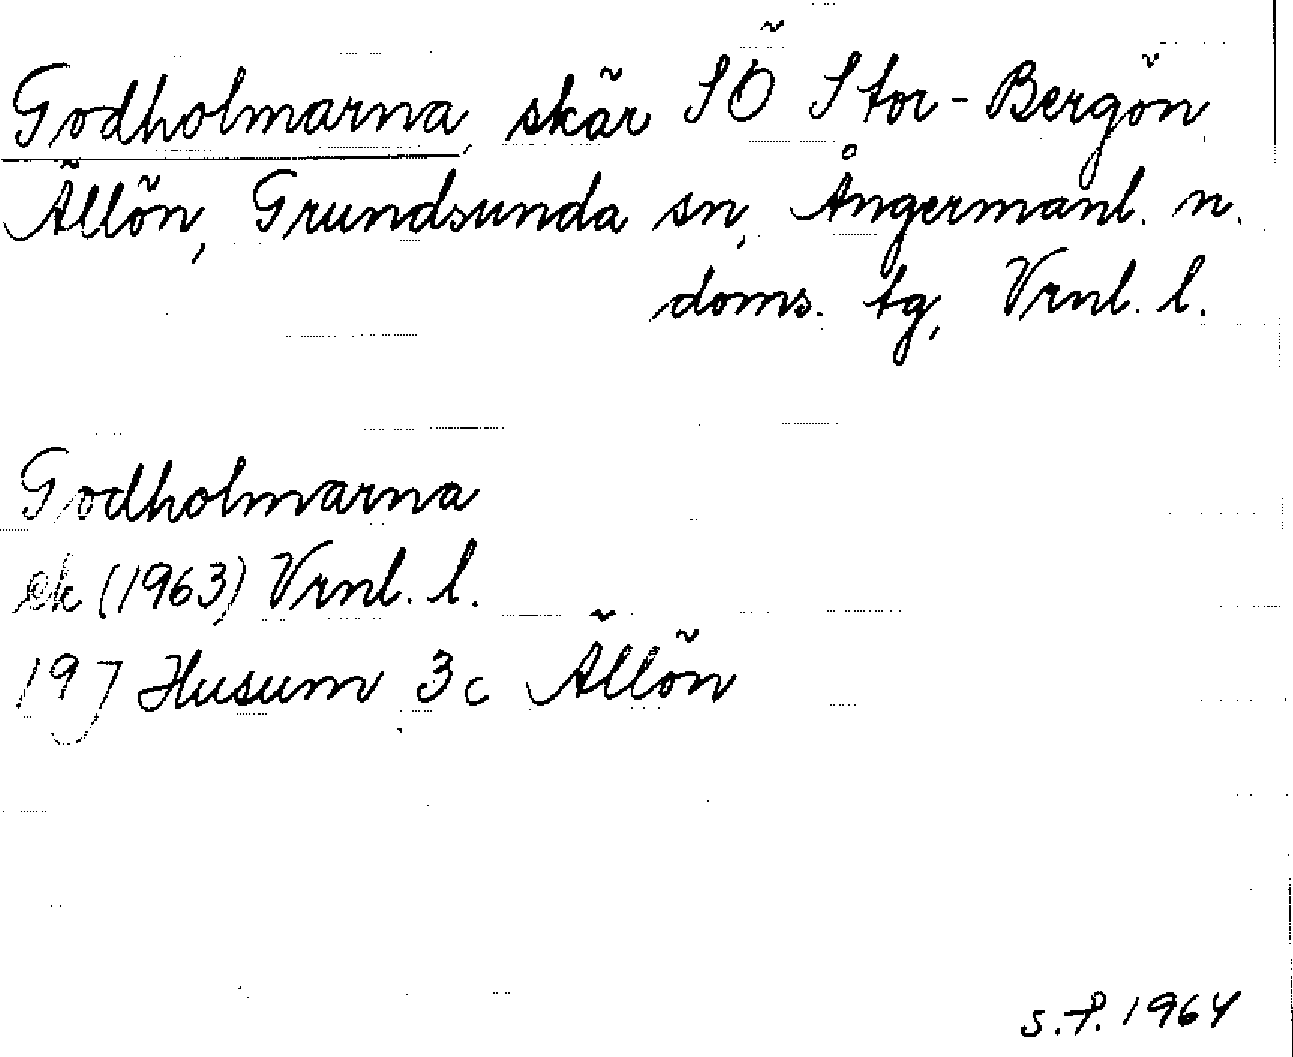 Godholmarna, skär SÖ Stor-Bergön,
Ällön, Grundsunda sn, Ångermanl. n.
doms. tg, Vrnl. l.
Godholmarna
ek (1963) Vrnl. l.
19 J Husum 3c Ällön
S.P. 1964